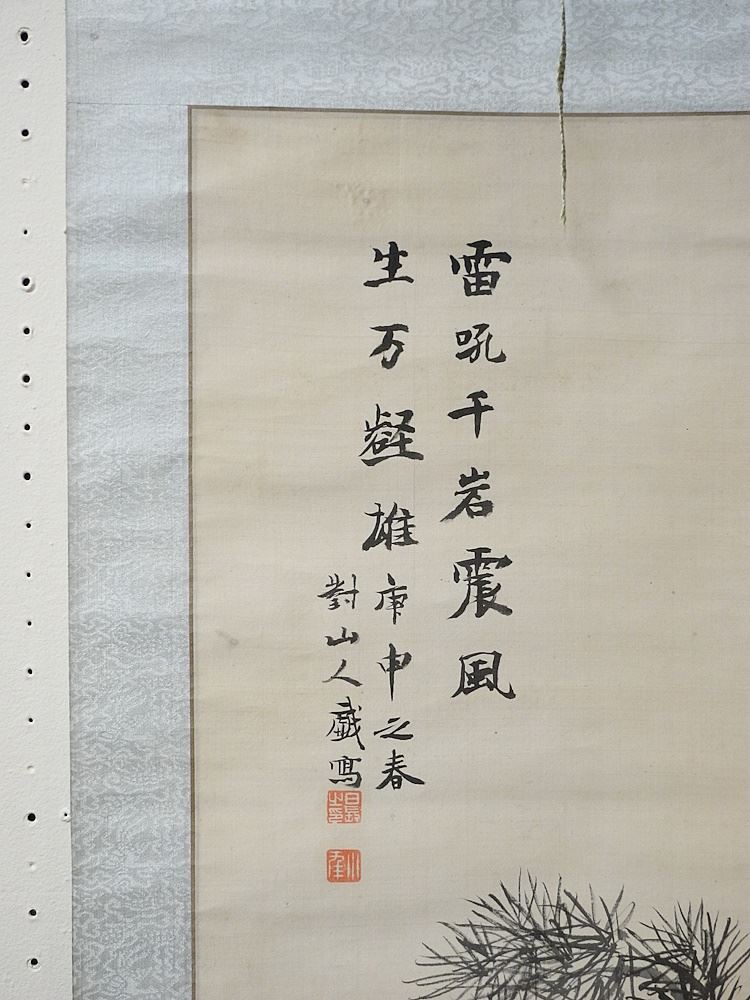 雷吼千岩震風
生万壑雄庚申之春
對山人戯寫